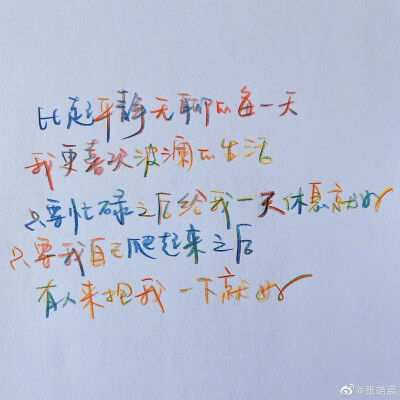 比起平静无聊的每一天
我更喜欢波澜的生活
只要忙碌之后给我一天休息就好
只要我自己爬起来之后
有人来抱我一下就好
@张皓宸